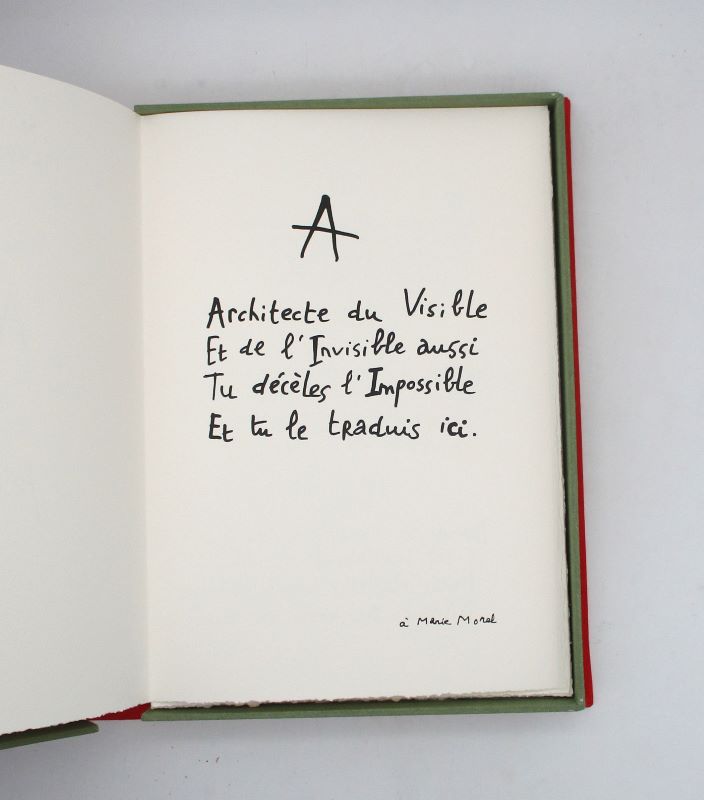 A
Architecte du Visible
Et de l'Invisible aussi
Tu décèles l'Impossible
Et tu le traduis ici.
à Marie Morel